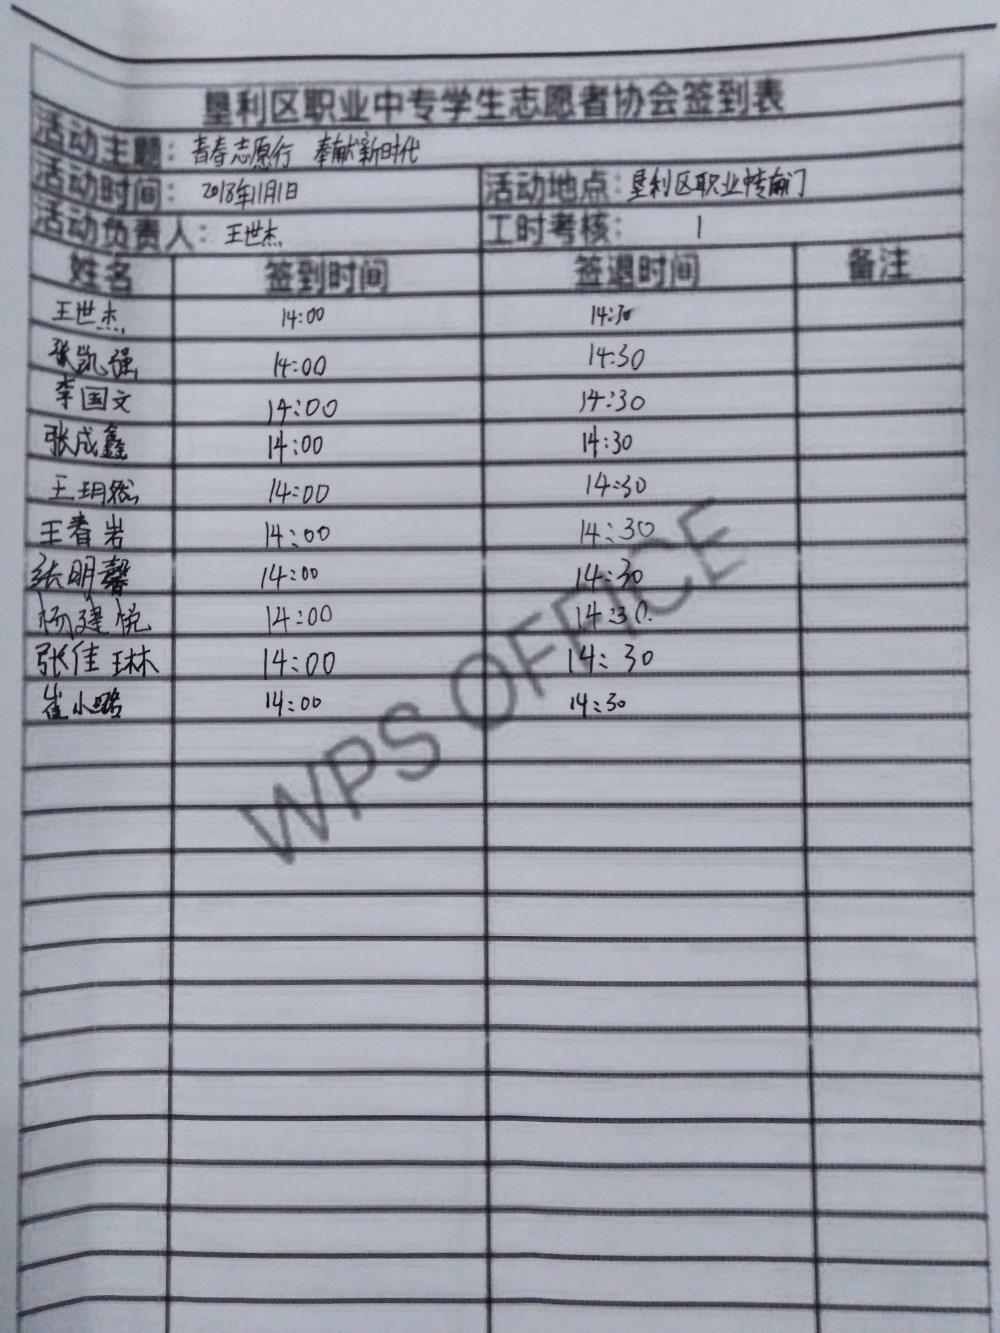 垦利区职业中专学生志愿者协会签到表
活动主题：青春志愿行 奉献新时代
活动时间：2018年11月1日 活动地点：垦利区职业中专南门
活动负责人：王世杰 工时考核： 1
姓名 签到时间 签退时间 备注
王世杰 14:00 14:30
张凯强 14:00 14:30
李国文 14:00 14:30
张成鑫 14:00 14:30
王玥然 14:00 14:30
王春岩 14:00 14:30
张明馨 14:00 14:30
杨建悦 14:00 14:30
张佳琳 14:00 14:30
崔小璐 14:00 14:30
WPS OFFICE